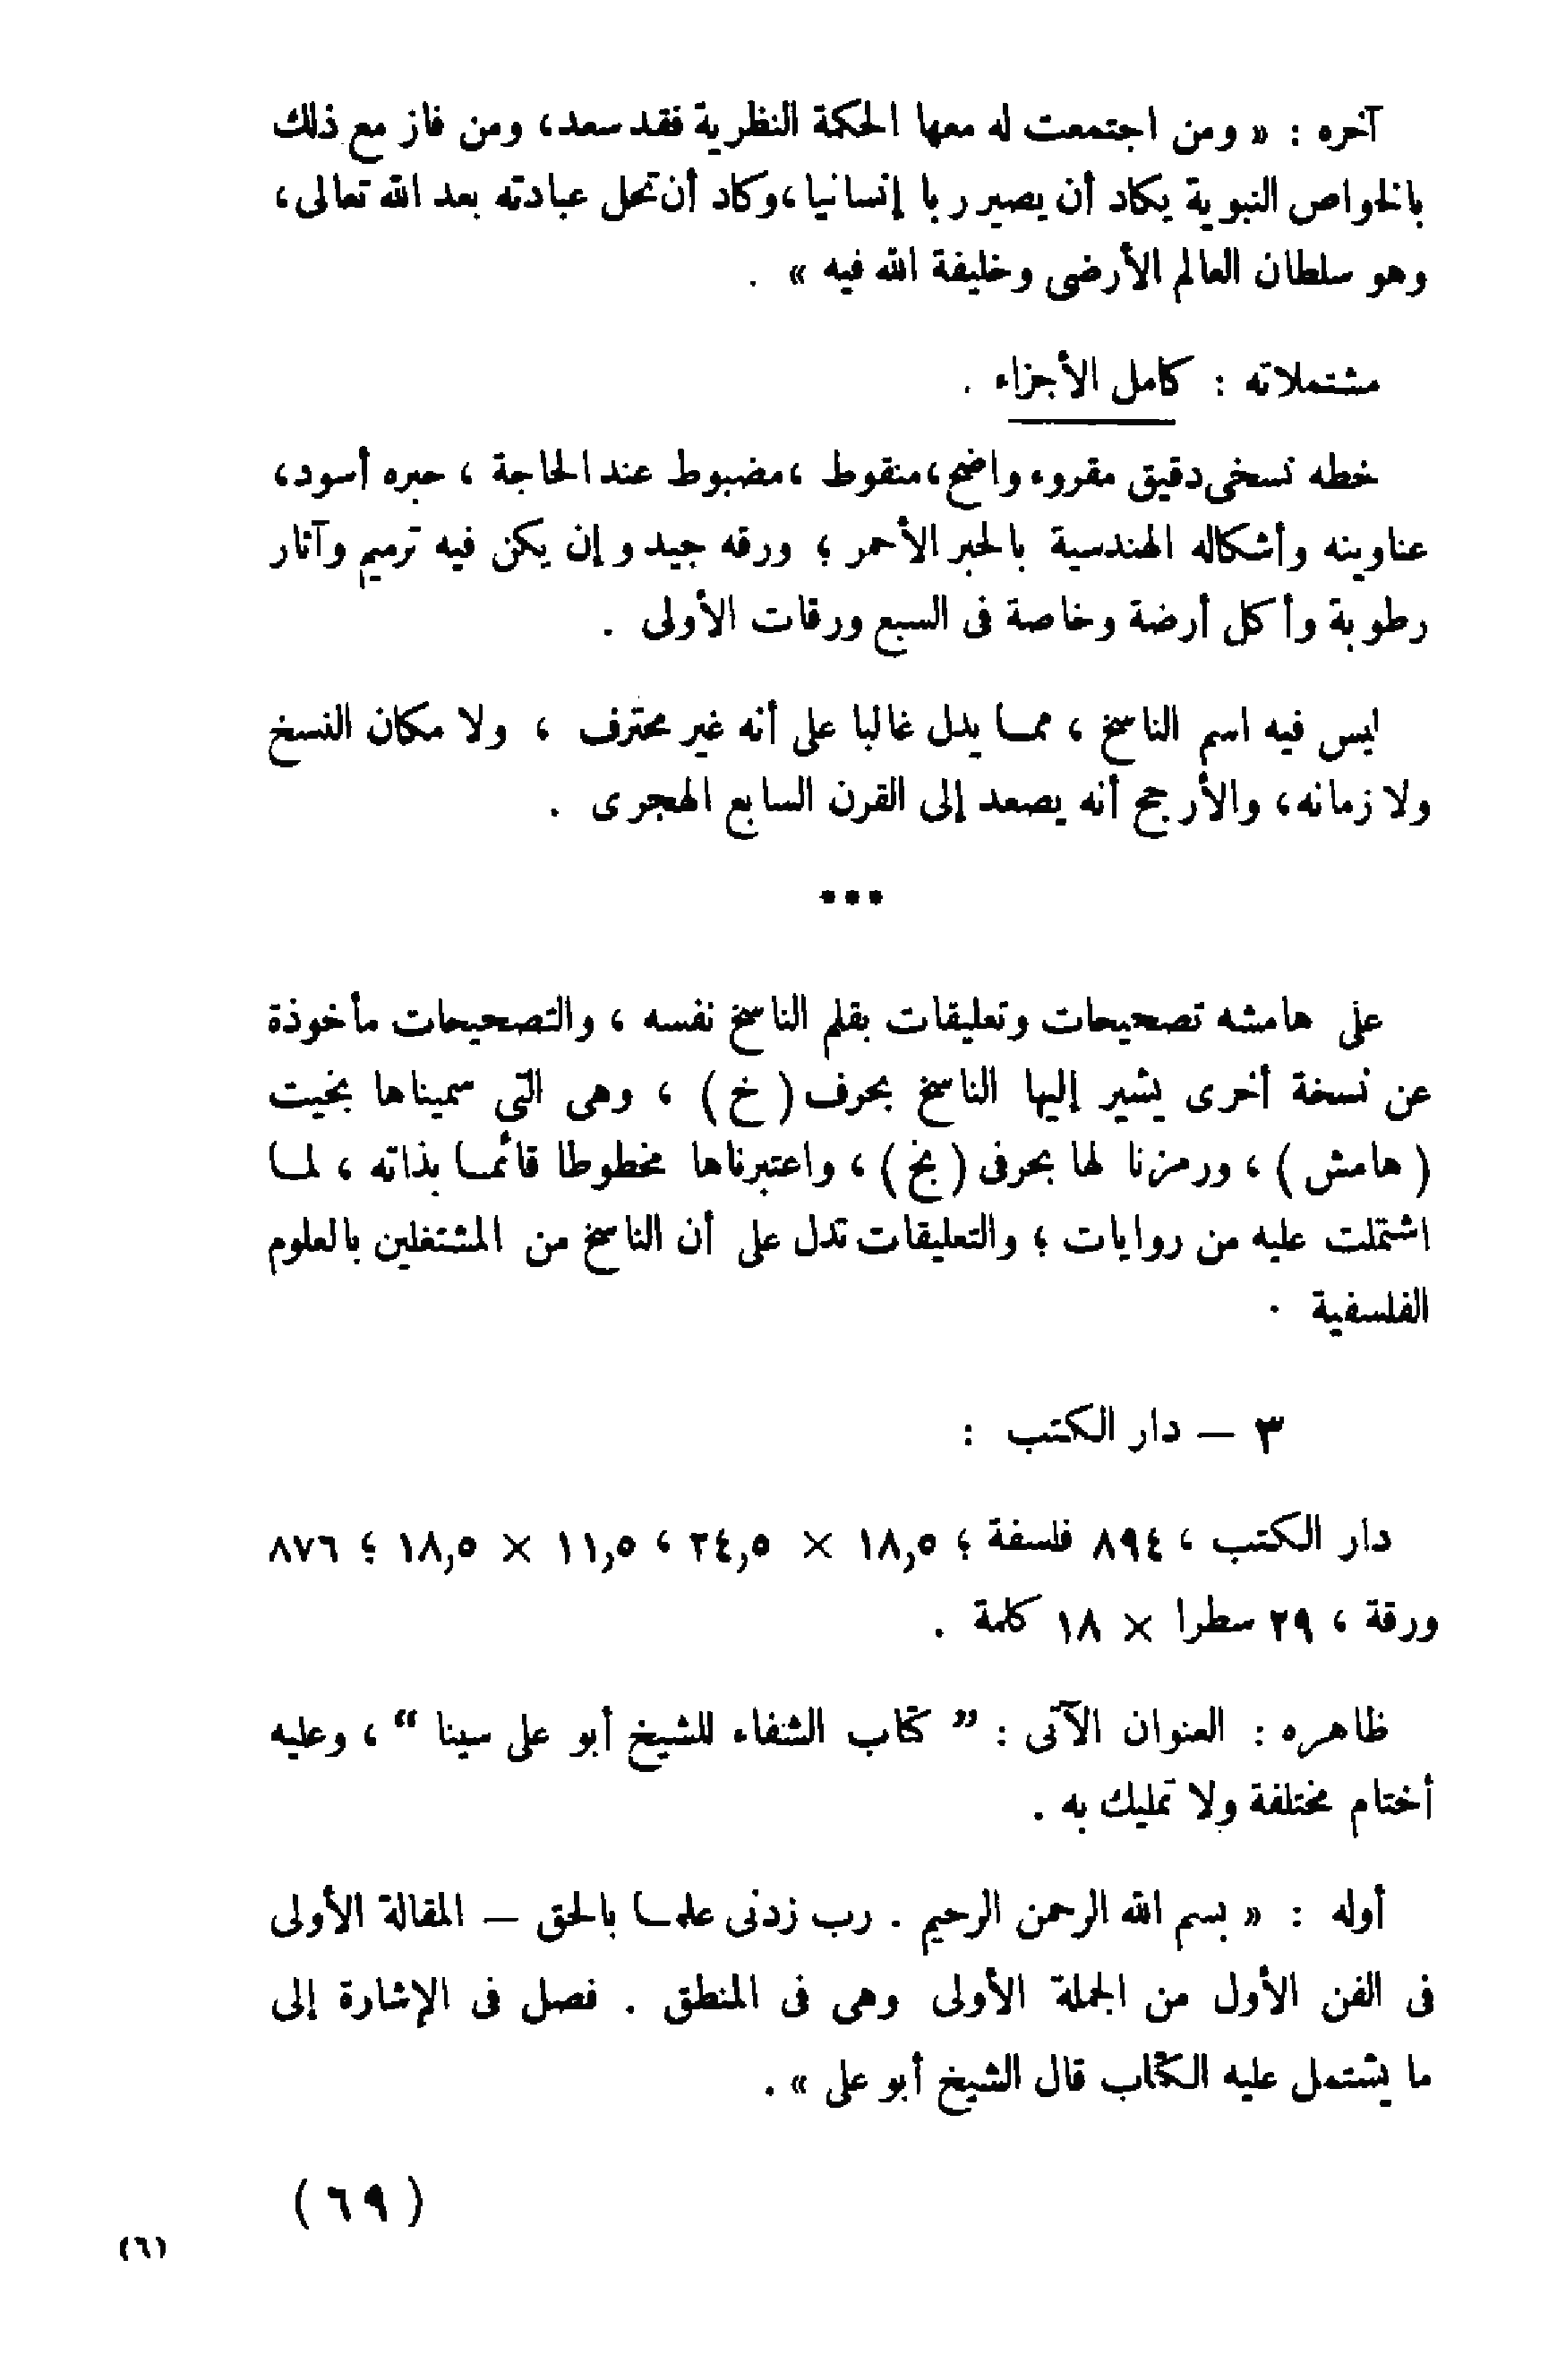 آخره : « ومن اجتمعت له معها الحكمة النظرية فقد سعد، ومن فاز مع ذلك
بالخواص النبوية يكاد أن يصير ربا إنسانيا، وكاد أن تحل عبادته بعد الله تعالى،
وهو سلطان العالم الأرضى وخليفة الله فيه » .
مشتملاته : كامل الأجزاء .
خطه نسخى دقيق مقروء واضح، منقوط، مضبوط عند الحاجة ، حبره أسود،
عناوينه وأشكاله الهندسية بالحبر الأحمر ؛ ورقه جيد وإن يكن فيه ترميم وآثار
رطوبة وأكل أرضة وخاصة فى السبع ورقات الأولى .
ليس فيه اسم الناسخ ، مما يدل غالبا على أنه غير محترف ، ولا مكان النسخ
ولا زمانه، والأرجح أنه يصعد إلى القرن السابع الهجرى .
***
على هامشه تصحيحات وتعليقات بقلم الناسخ نفسه ، والتصحيحات مأخوذة
عن نسخة أخرى يشير إليها الناسخ بحرف ( خ ) ، وهى التى سميناها بخيت
( هامش ) ، ورمزنا لها بحرفى ( بخ ) ، واعتبرناها مخطوطا قائما بذاته ، لما
اشتملت عليه من روايات ؛ والتعليقات تدل على أن الناسخ من المشتغلين بالعلوم
الفلسفية .
٣ — دار الكتب :
دار الكتب ، ٨٩٤ فلسفة ؛ ١٨,٥ × ٢٤,٥ ، ١١,٥ × ١٨,٥ ؛ ٨٧٦
ورقة ، ٢٩ سطرا × ١٨ كلمة .
ظاهره : العنوان الآتى : ” كتاب الشفاء للشيخ أبو على سينا “ ، وعليه
أختام مختلفة ولا تمليك به .
أوله : « بسم الله الرحمن الرحيم . رب زدنى علما بالحق — المقالة الأولى
فى الفن الأول من الجملة الأولى وهى فى المنطق . فصل فى الإشارة إلى
ما يشتمل عليه الكتاب قال الشيخ أبو على » .
( ٦٩ )
(٦)